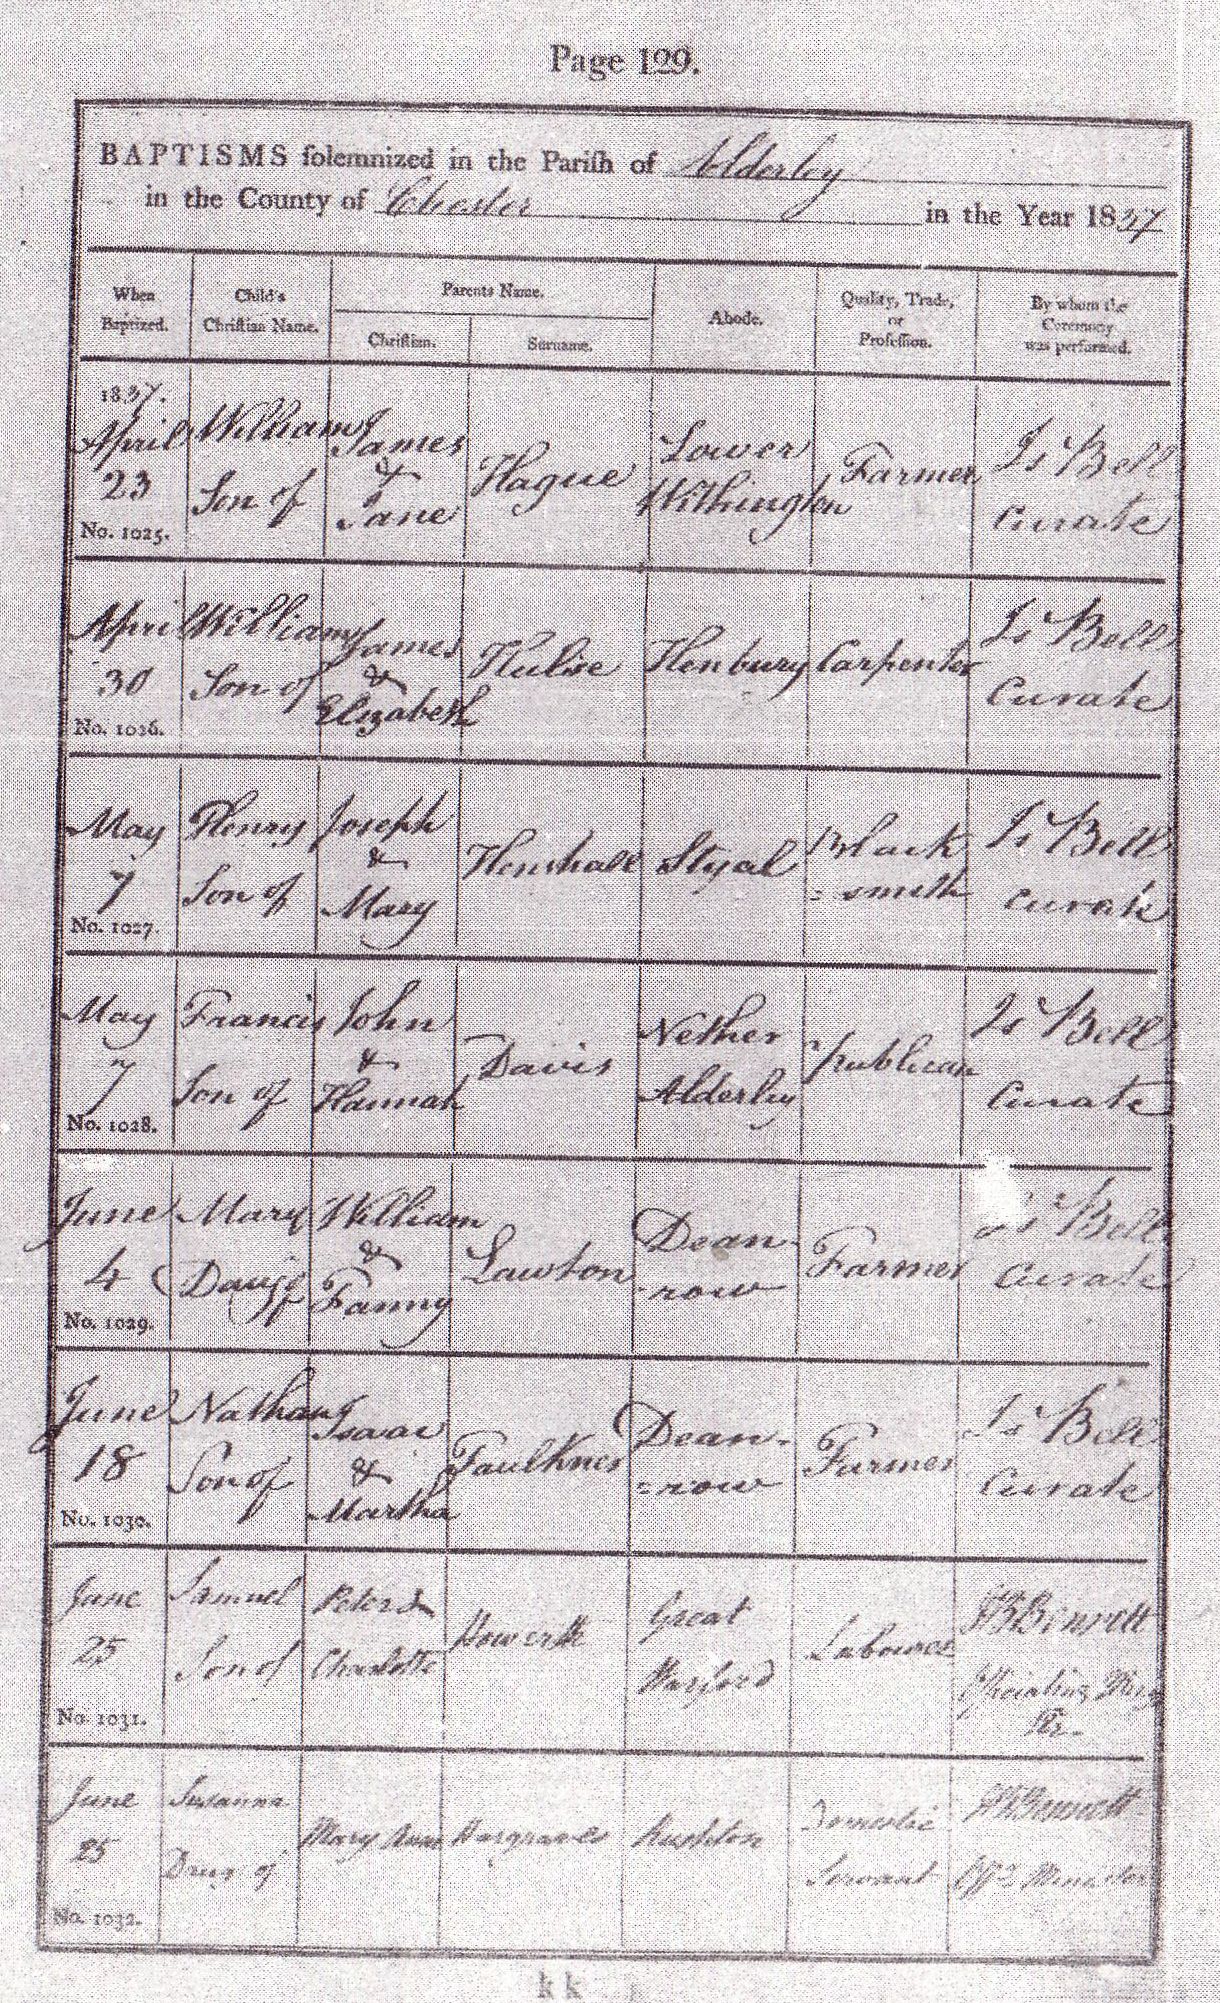 Page 109.
BAPTISMS solemnized in the Parish of Alderley
in the County of Chester in the Year 1837
When Baptized.
Child's Christian Name.
Parents Name.
Christian.
Surname.
Abode.
Quality, Trade, or Profession.
By whom the Ceremony was performed.
1837.
April 23
No. 1025.
William Son of
James & Jane
Hague
Lower Withington
Farmer
Js Bell Curate
April 30
No. 1026.
William Son of
James & Elizabeth
Hulse
Henbury
Carpenter
Js Bell Curate
May 7
No. 1027.
Henry Son of
Joseph & Mary
Henshall
Styal
Black =smith
Js Bell Curate
May 7
No. 1028.
Francis Son of
John & Hannah
Davis
Nether Alderley
Publican
Js Bell Curate
June 4
No. 1029.
Mary Daugr of
William & Fanny
Lawton
Dean- -row
Farmer
Js Bell Curate
June 18
No. 1030.
Nathan Son of
Isaac & Martha
Faulkner
Dean= =row
Farmer
Js Bell Curate
June 25
No. 1031.
Samuel Son of
Peter & Charlotte
Howerth
Great Warford
Labourer
Bennett
Officiating
June 25
No. 1032.
Susanna Daug of
Mary Anne
Hargraves
Rushton
Domestic Servant
Bennett
Offg Minister
kk